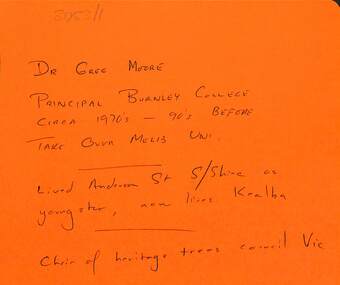 3053/1
DR GREG MOORE
PRINCIPAL BURNLEY COLLEGE
CIRCA 1970's — 90's BEFORE
TAKE OVER MELB UNI.
Lived Anderson St S/Shine as
youngster, now lives Kealba
Chair of heritage trees council Vic